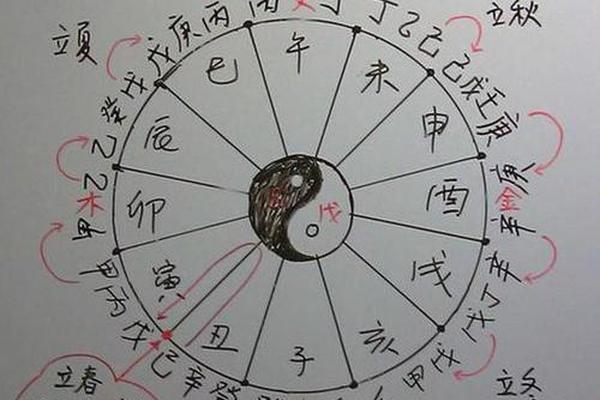 立夏
立秋
立春
立冬
午
未
申
酉
戌
亥
子
丑
寅
卯
辰
巳
丁
丁
乙
己
己
戊
壬
庚
庚
金
辛
辛
丁
戊
戊
甲
癸
辛
己
戊
丙
甲
甲
木
乙
乙
癸
戊
戊
庚
丙
丙
火
戊